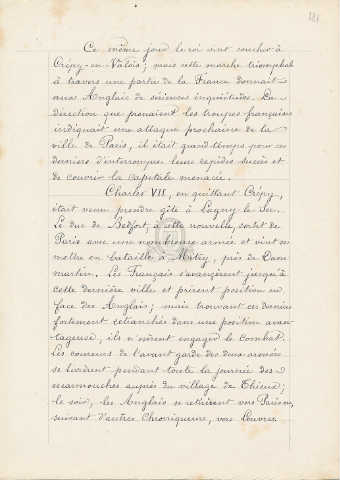 181
Ce même jour le roi vint coucher à
Crépy-en-Valois ; mais cette marche triomphale
à travers une partie de la France donnait
aux Anglais de sérieuses inquiétudes. La
direction que prenaient les troupes françaises
indiquait une attaque prochaine de la
ville de Paris, il était grand temps pour ces
derniers d'interrompre leurs rapides succès et
de couvrir la capitale menacée.
Charles VII, en quittant Crépy,
était venu prendre gîte à Lagny le Sec.
Le duc de Bedfort, à cette nouvelle, sortit de
Paris avec une nombreuse armée et vint se
mettre en bataille à Mitry, près de Dam
martin. Les Français s'avancèrent jusqu'à
cette dernière ville et prirent position en
face des Anglais ; mais trouvant ces derniers
fortement retranchés dans une position avan
tageuse, ils n'osèrent engager le combat.
Les coureurs de l'avant garde des deux armées
se livrèrent pendant toute la journée des
escarmouches auprès du village de Thieux ;
le soir, les Anglais se retirèrent vers Paris ou,
suivant d'autres Chroniqueurs, vers Louvres.